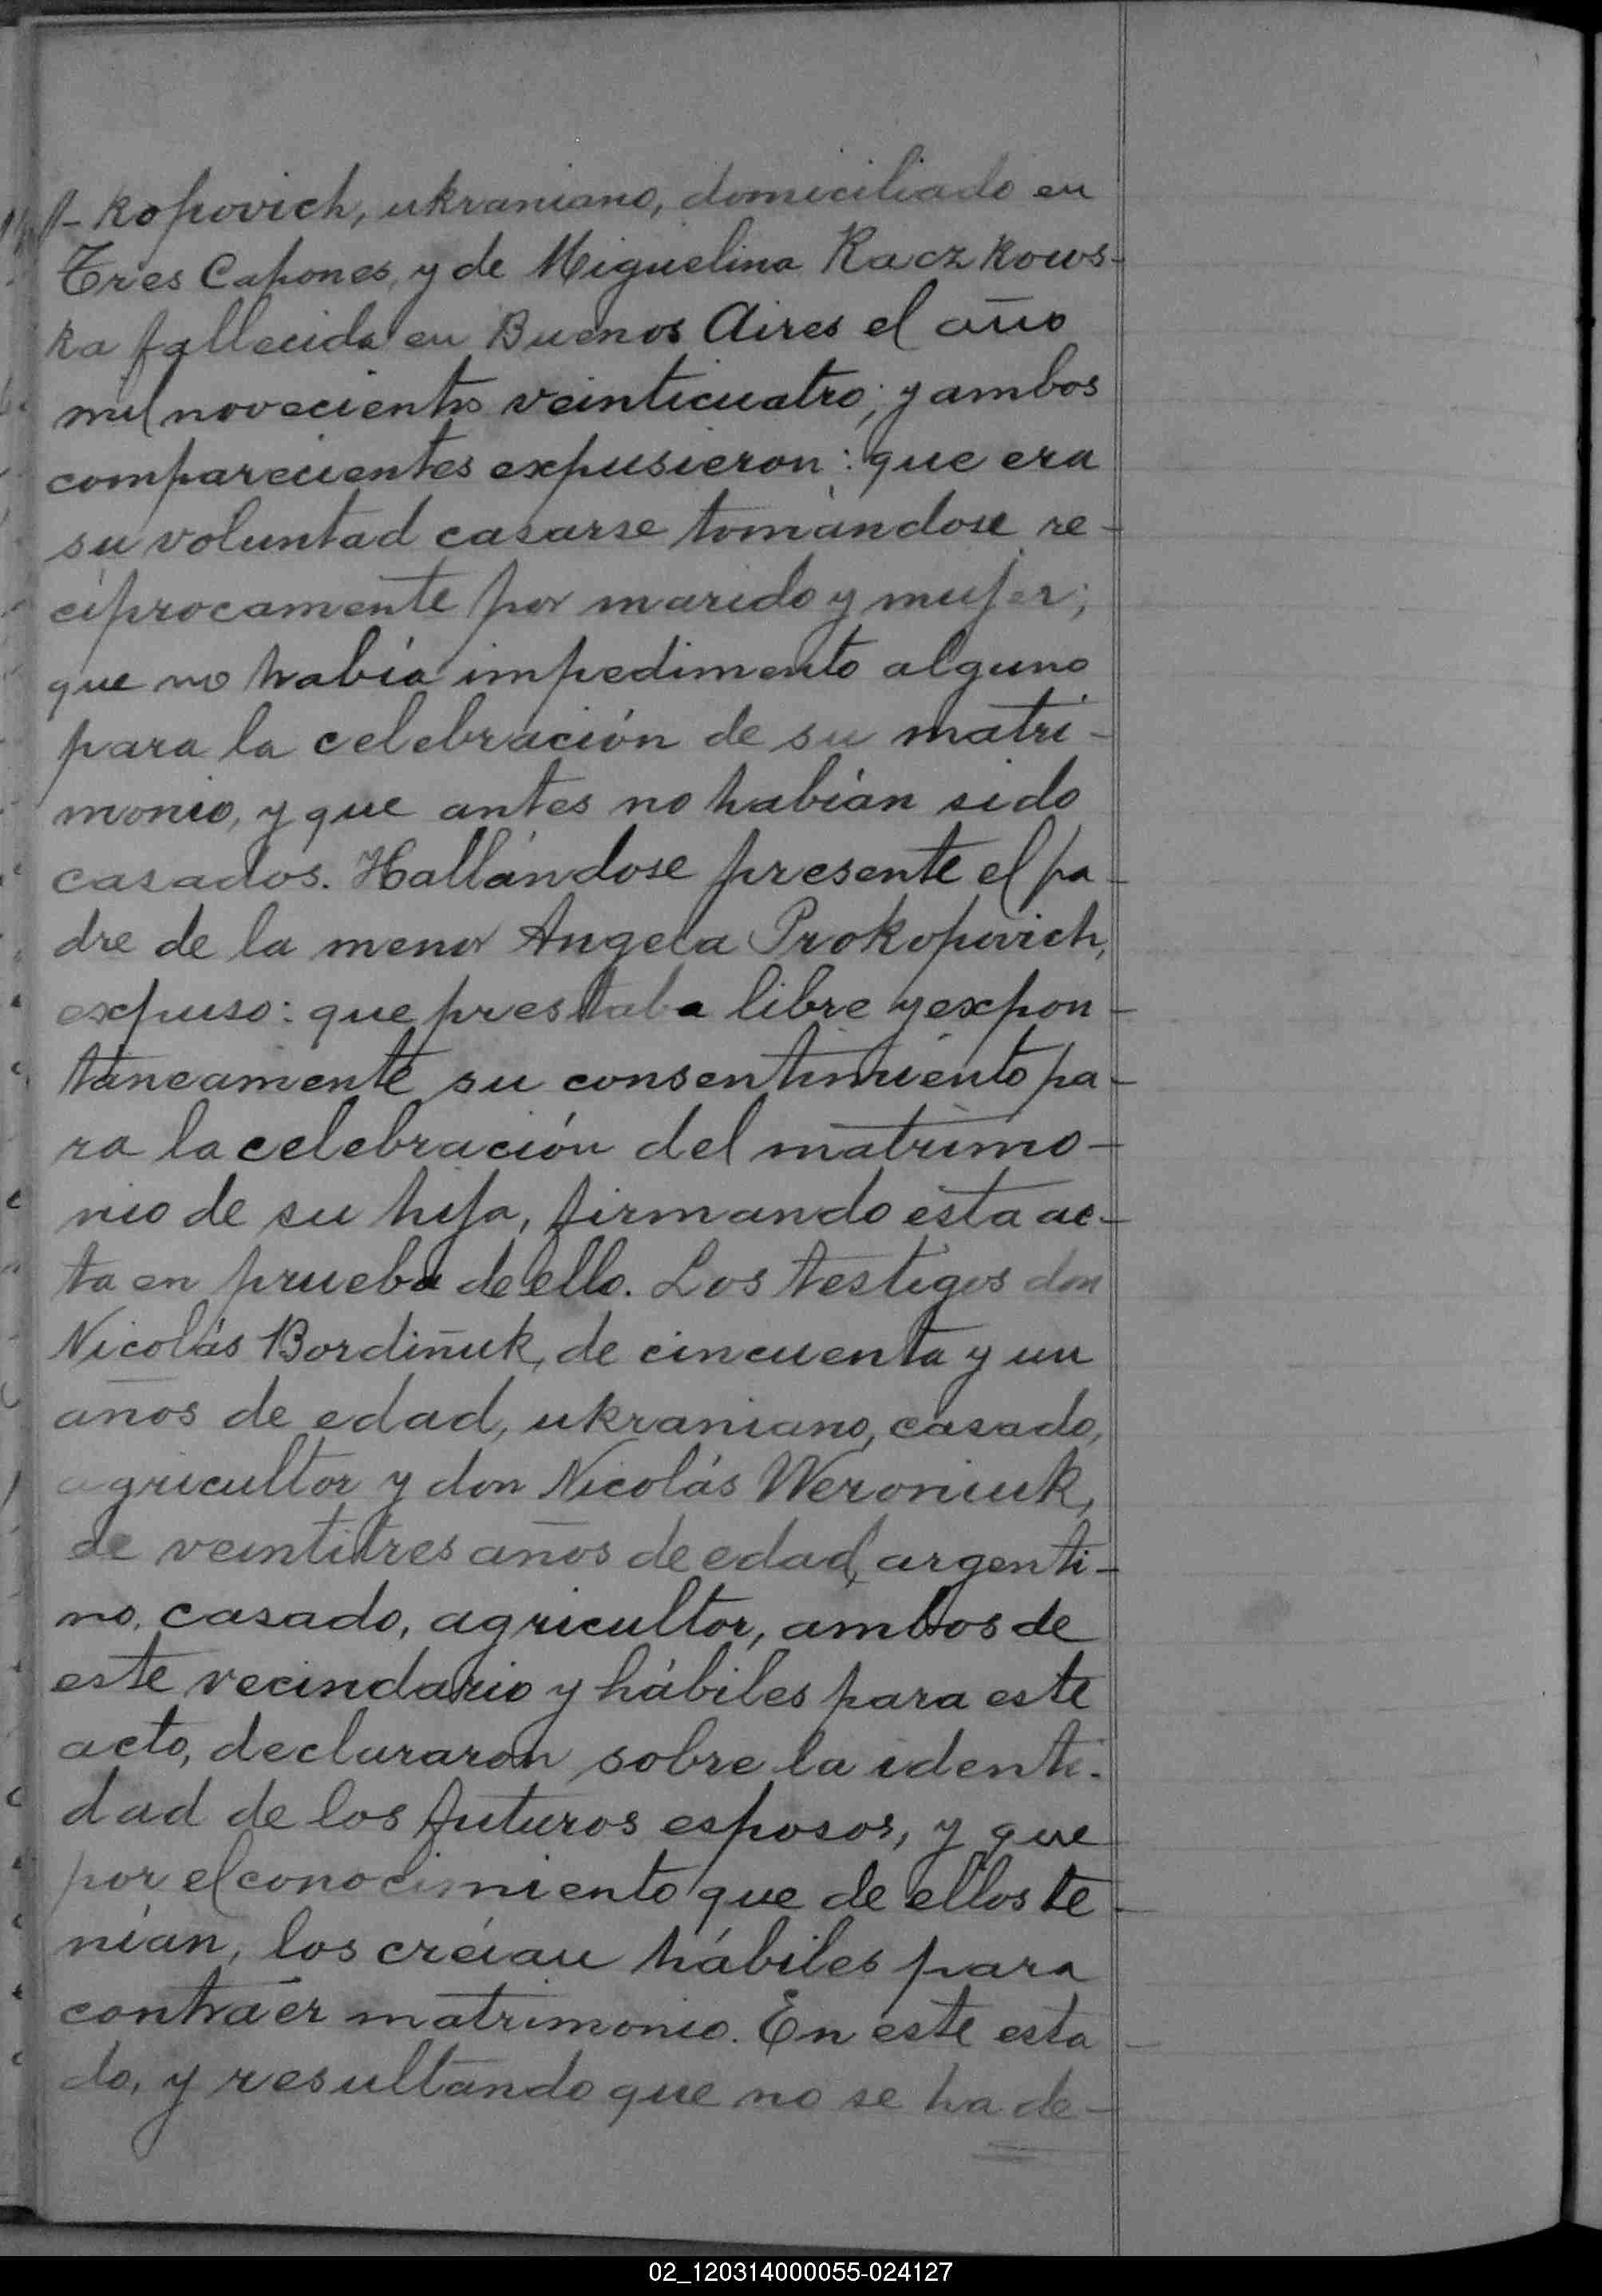 - kopovich, ukraniano, domiciliado en
Tres Capones, y de Miguelina Kaczkows-
ka fallecida en Buenos Aires el año
mil novecientos veinticuatro; y ambos
comparecientes expusieron: que era
su voluntad casarse tomándose re-
ciprocamente por marido y mujer;
que no había impedimento alguno
para la celebración de su matri-
monio, y que antes no habían sido
casados. Hallándose presente el pa-
dre de la menor Angela Prokopovich,
expuso: que prestaba libre y expon-
táneamente su consentimiento pa-
ra la celebración del matrimo-
nio de su hija, firmando esta ac-
ta en prueba de ello. Los testigos don
Nicolás Bordiñuk, de cincuenta y un
años de edad, ukraniano, casado,
agricultor y don Nicolás Weroniuk,
de veintitres años de edad, argenti-
no, casado, agricultor, ambos de
este vecindario y hábiles para este
acto, declararon sobre la identi-
dad de los futuros esposos, y que
por el conocimiento que de ellos te-
nían, los créian hábiles para
contraer matrimonio. En este esta-
do, y resultando que no se ha de-
02_120314000055-024127